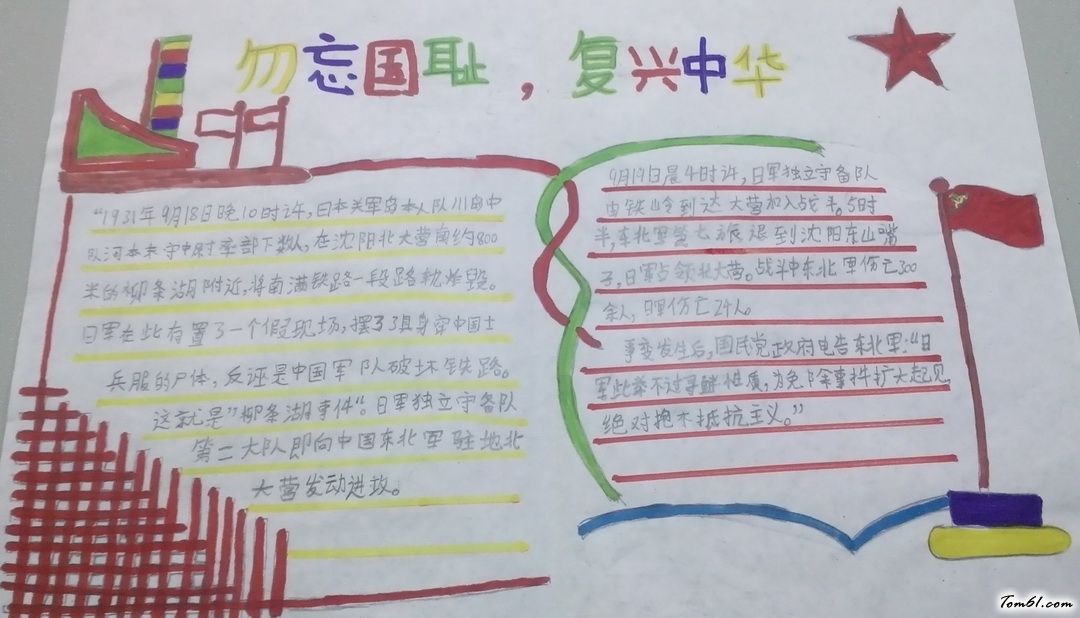 勿忘国耻，复兴中华
“1931年9月18日晚10时许，日本关军岛本人队川由中
队河本末守中尉率部下数人，在沈阳北大营南约800
米的柳条湖附近，将南满铁路一段路轨炸毁。
日军在此布置了一个假现场，摆了3具身穿中国士
兵服的尸体，反诬是中国军队破坏铁路。
这就是”柳条湖事件“。日军独立守备队
第二大队即向中国东北军驻地北
大营发动进攻。
9月19日晨4时许，日军独立守备队
由铁岭到达 大营加入战斗。5时
半，东北军第七旅退到沈阳东山嘴
子，日军占领北大营。战斗中东北军伤亡300
余人，日军伤亡24人。
事变发生后，国民党政府电告东北军：“日
军此举不过寻衅性质，为免除事件扩大起见，
绝对抱不抵抗主义。”
Tom61.com